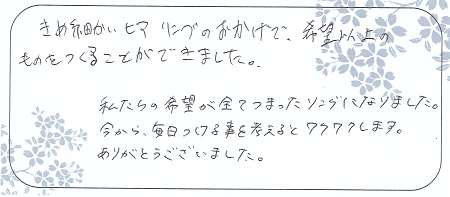 きめ細かいヒアリングのおかげで、希望以上の
ものをつくることができました。
私たちの希望が全てつまったリングになりました。
今から、毎日つける事を考えるとワクワクします。
ありがとうございました。